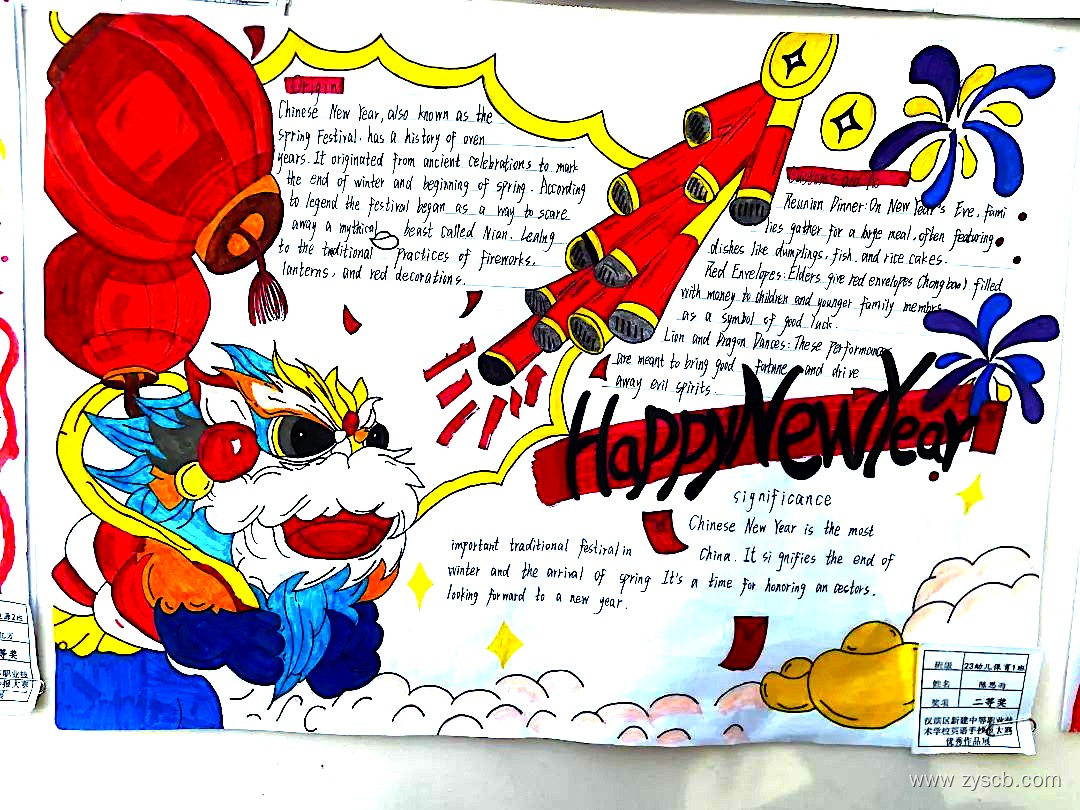 Origin
Chinese New Year, also known as the
Spring Festival. has a history of oven
years. It originated from ancient celebrations to mark
the end of winter and beginning of spring. According
to legend the festival began as a way to scare
away a mythical beast called Nian. Leaing
to the traditional practices of fireworks.
lanterns, and red decorations.
Customs and
Reunion Dinner: On New Year's Eve, fami
lies gather for a large meal, often featuring
dishes like dumplings, fish, and rice cakes.
Red Envelopes: Elders give red envelopes (hongbao) filled
with money to children and younger family membrs
as a symbol of good luck.
Lion and Dragon Dances: These performances
are meant to bring good fortune and drive
away evil spirits.
Happy New Year
significance
Chinese New Year is the most
important traditional festival in China. It si gnifies the end of
winter and the arrival of spring It's a time for honoring an cestors.
looking forward to a new year.
班级 23幼儿保育1班
姓名 陈思雨
奖项 二等奖
汉滨区新建中等职业技
术学校英语手抄报大赛
优秀作品展
www.zyscb.com